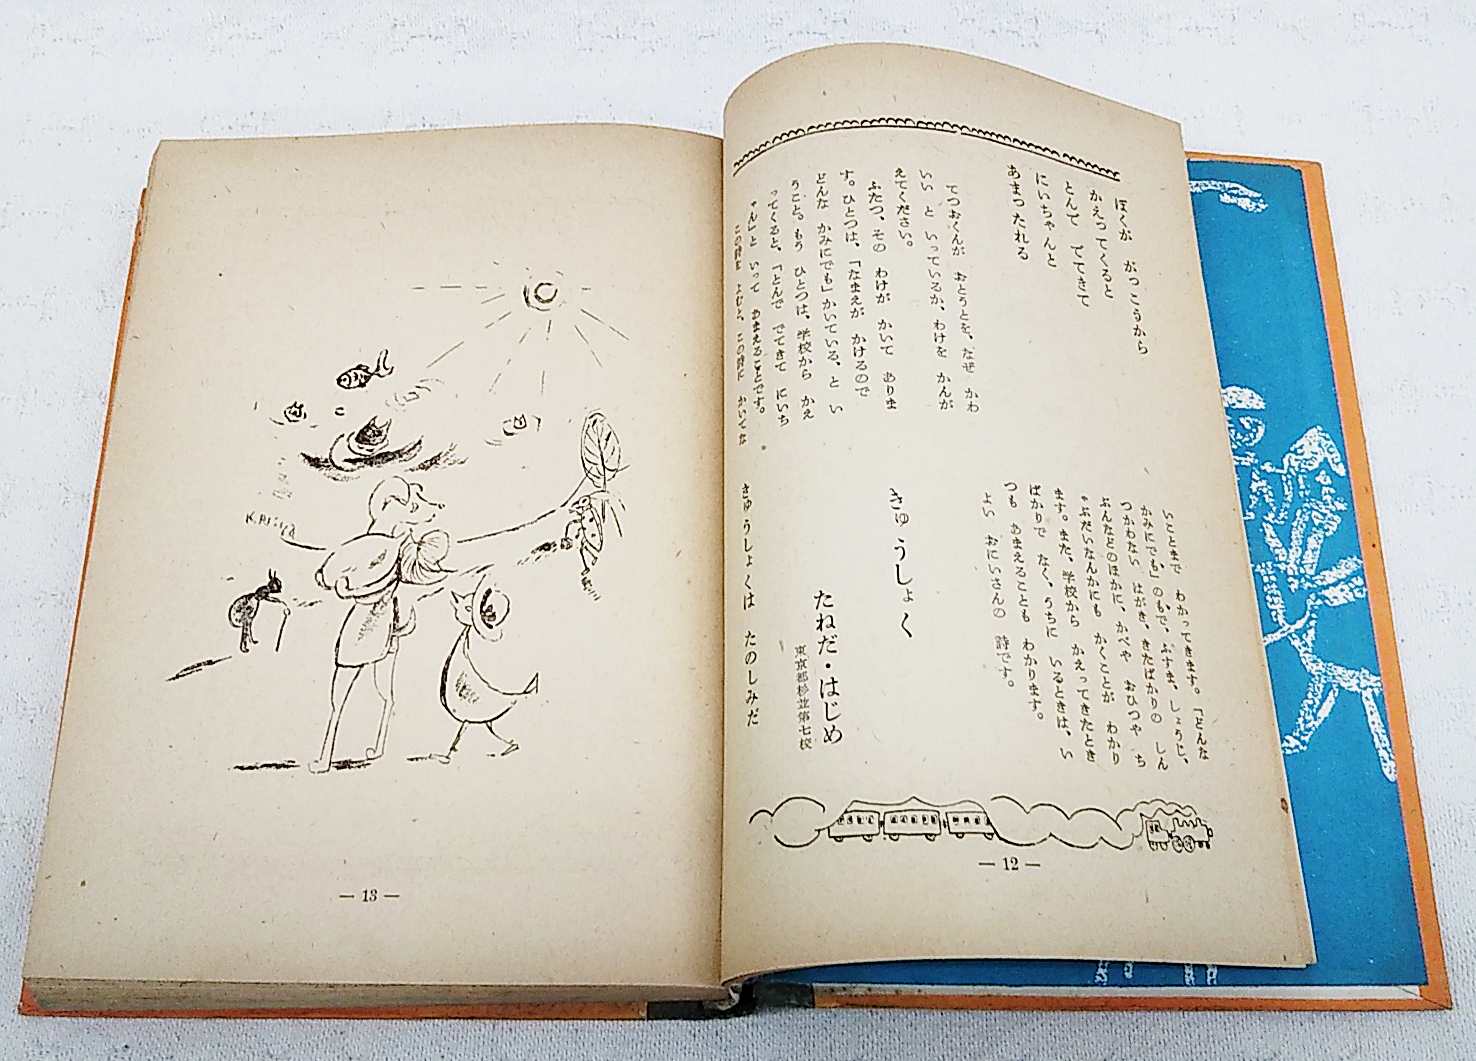 ぼくが がっこうから
かえってくると
とんで でてきて
にいちゃんと
あまったれる
てつおくんが おとうとを、なぜ かわ
いい と いっているか、わけを かんが
えてください。
ふたつ、その わけが かいて ありま
す。ひとつは、「なまえが かけるので
どんな かみにでも」かいている、と い
うこと。もう ひとつは、学校から かえ
ってくると、「とんで でてきて にいち
ゃん」と いって あまえることです。
この詩を よむと、この詩に かいてな
いことまで わかってきます。「どんな
かみにでも」のもで、ふすま、しょうじ、
つかわない はがき、きたばかりの しん
ぶんなどのほかに、かべや おひつや ち
ゃぶだいなんかにも かくことが わかり
ます。また、学校から かえってきたとき
ばかりで なく、うちに いるときは、い
つも あまえることも わかります。
よい おにいさんの 詩です。
きゅうしょく
たねだ・はじめ
東京都杉並第七校
きゅうしょくは たのしみだ
— 12 —
— 13 —